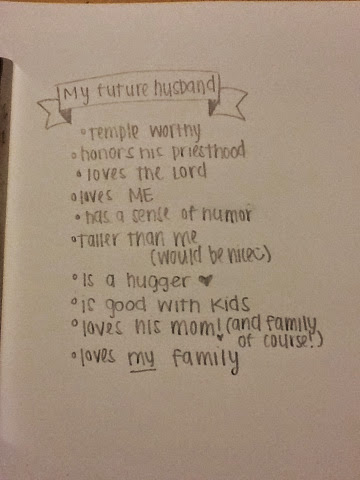 My future husband
• Temple worthy
• honors his priesthood
• loves the Lord
• loves ME
• has a sense of humor
• taller than me
(would be nice☺)
• Is a hugger ♥
• is good with kids
• loves his mom! (and family
of course!)
• loves my family